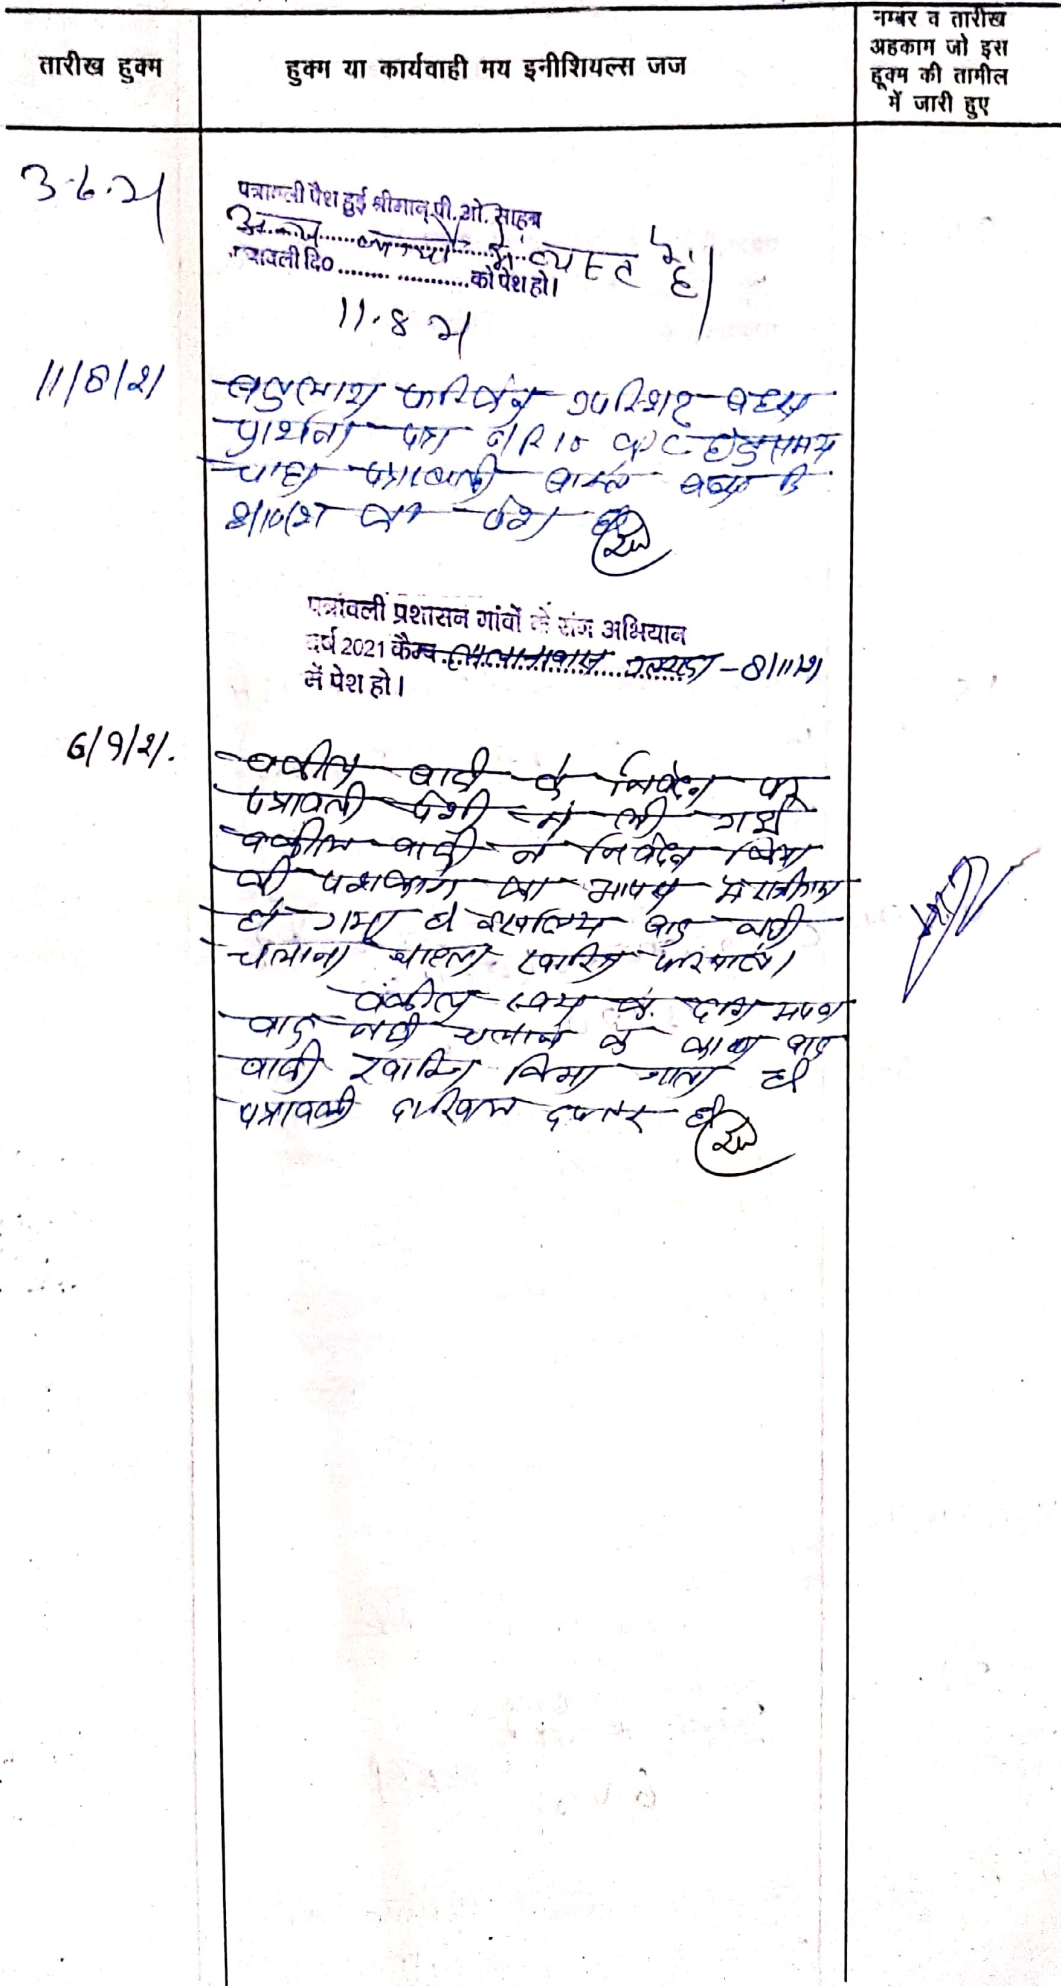 तारीख हुक्म
हुक्म या कार्यवाही मय इनीशियल्स जज
नम्बर व तारीख
अहकाम जो इस
हूक्म की तामील
में जारी हुए
3-6-21
पत्रावली पेश हुई श्रीमान् पी. ओ. साहब
अन्य कार्यो में व्यस्त है।
पत्रावली दि० ............ को पेश हो।
11.8 21
11/8/21
उपस्थित बहस
प्रार्थना पत्र 7 R 10 CPC हेतु समय
चाहा पत्रावली वास्ते बहस
8/10/21 को पेश हो
पत्रावली प्रशासन गांवों के संग अभियान
वर्ष 2021 कैम्प - 8/11/21
में पेश हो।
6/9/21.
वकील वादी के निवेदन पर
पत्रावली पेशी में ली गई
वकील वादी ने निवेदन किया
की पक्षकारों का आपस में राजीनामा
हो गया है इसलिए वाद नहीं
चलाना चाहता खारिज फरमावे।
वकील के द्वारा
वाद नहीं चलाने के कारण वाद
वादी खारिज किया जाता है
पत्रावली दाखिल दफ्तर हो